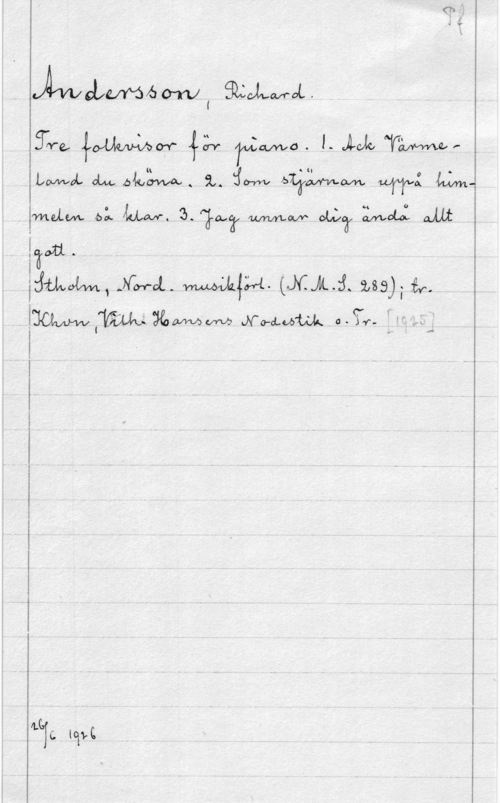 Pf
Andersson, Richard.
Tre folkvisor för piano. 1. Ack Värme-
land du sköna. 2. Som stjärnan uppå him-
melen så klar. 3. Jag unnar dig ändå allt
gott.
Stholm, Nord. musikförl. (N.M.S. 289); tr.
Khvn, Vilh. Hansens Nodestik o. Tr. [1925]
26/6 1926